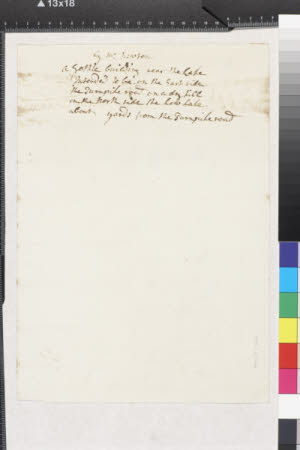 ▲ 13x18
By Mr
a Gothic building near the Lake
Intended to be on the East side
the Turnpike road on a dry Hill
on the North side the Low Lake
about yards from the Turnpike road